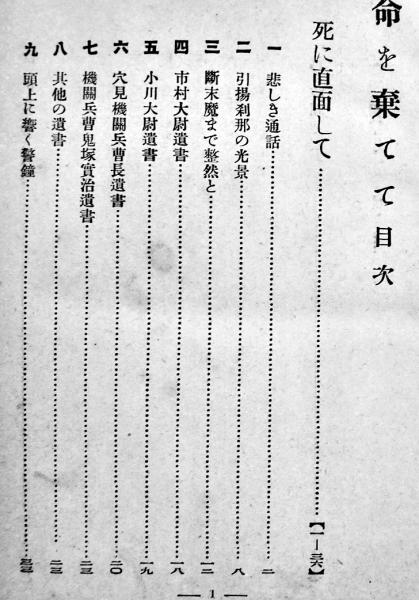 命を棄てて目次
死に直面して……【一―三六】
一 悲しき通話……二
二 引揚刹那の光景……八
三 斷末魔まで整然と……一二
四 市村大尉遺書……一八
五 小川大尉遺書……一九
六 穴見機關兵曹長遺書……二〇
七 機關兵曹鬼塚實治遺書……二三
八 其他の遺書……二三
九 頭上に響く警鐘……三三
— 1 —